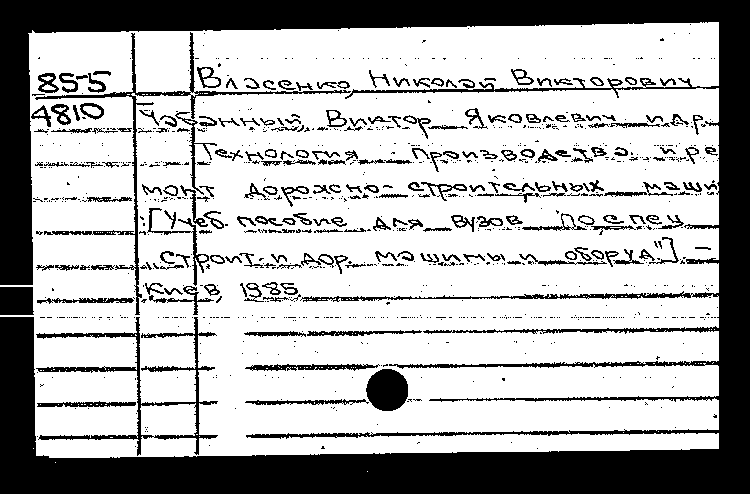 85-5 Власенко, Николай Викторович
4810 Чабанный, Виктор Яковлевич и др.
Технология производства и ре
монт дорожно-строительных машин
[Учеб. пособие для вузов по спец
"Строит. и дор. машины и оборуд"] –
Киев, 1985